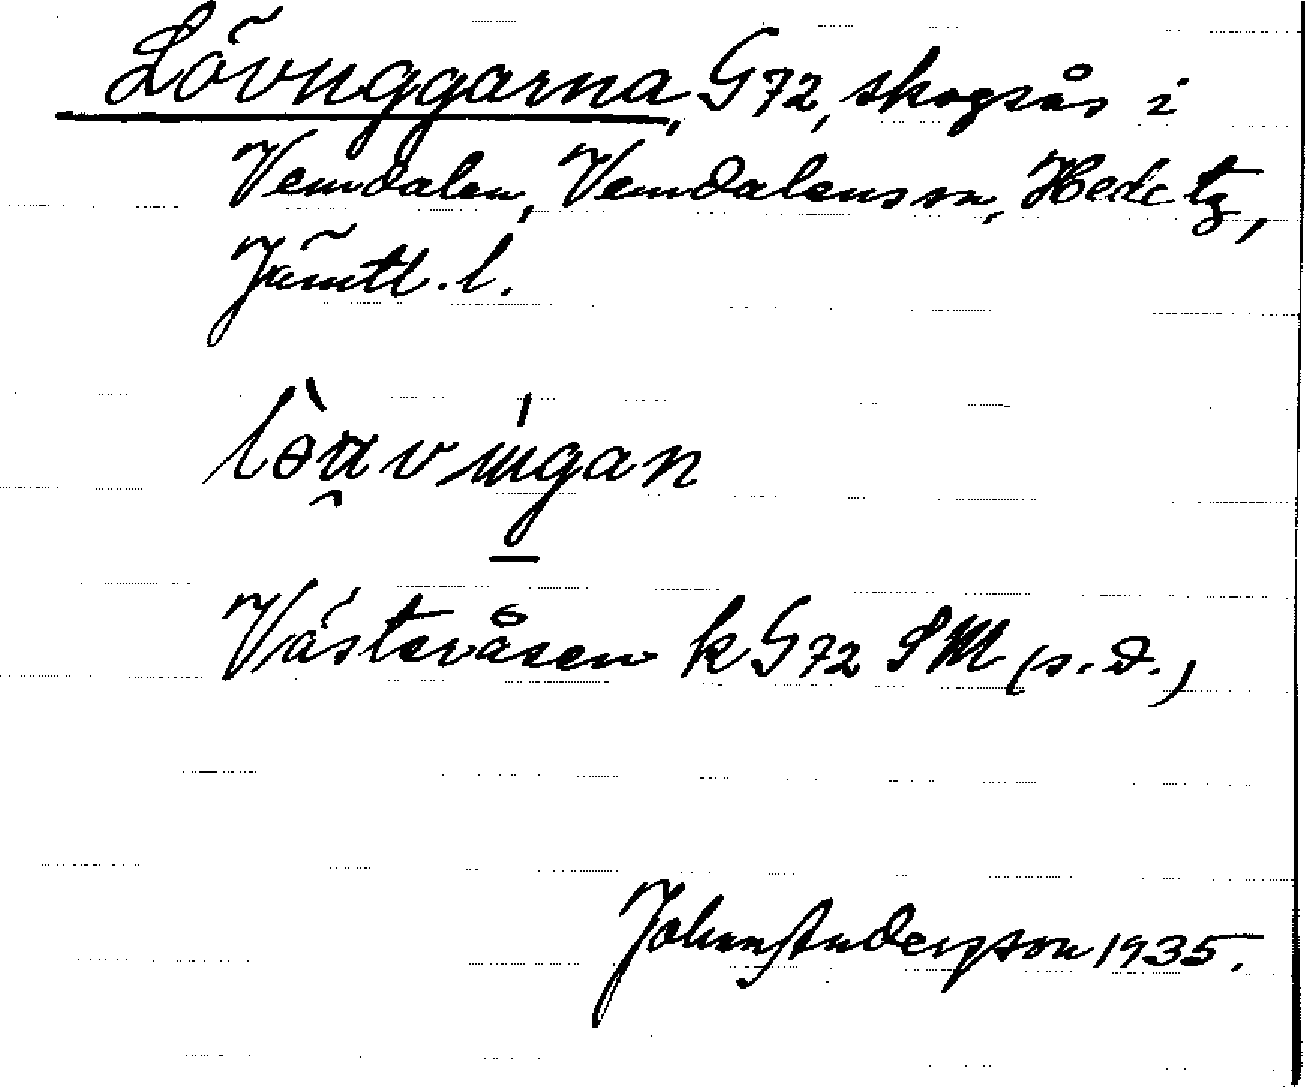 Lövuggarna, G72, skogsås i
Vemdalen, Vemdalens sn, Hede tg,
Jämtl. l.
Västeråsen k G72 SM (s.d.)
Johan Anderson 1935.